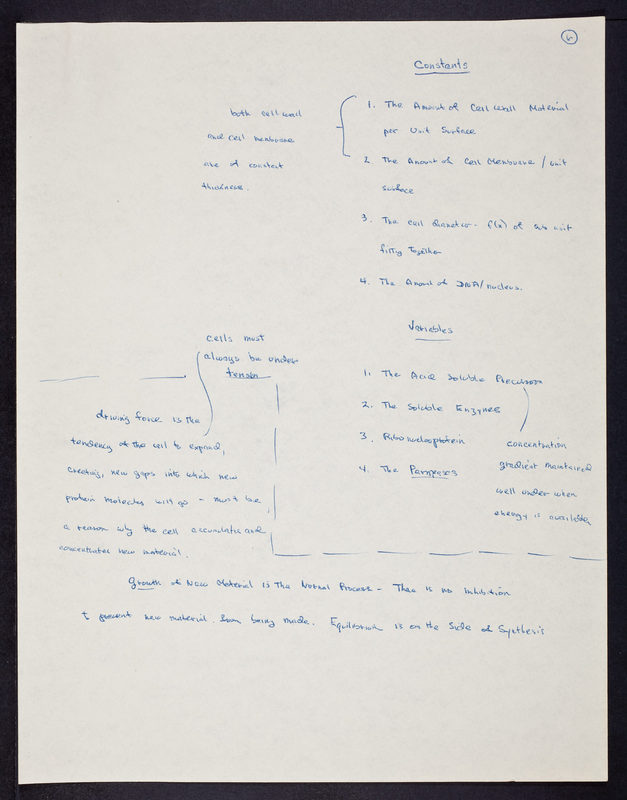 Constants
both cell wall
and cell membrane
are of constant
thickness.
1. The Amount of Cell Wall Material
per Unit Surface
2. The Amount of Cell Membrane / unit
surface
3. The cell diameter - f(x) of sub unit
fitting together
4. The Amount of DNA/nucleus.
Variables
1. The Acid Soluble Precursors
2. The Soluble Enzymes
3. Ribonucleoprotein
4. The
concentration
gradient maintained
well under when
energy is available
cells must
always be under
tension
driving force is the
tendency of the cell to expand,
creating, new gaps into which new
protein molecules will go - must be
a reason why the cell accumulates and
concentrates new material.
Growth of New Material is The Normal Process - There is no inhibition
to prevent new material from being made. Equilibrium is on the Side of Synthesis